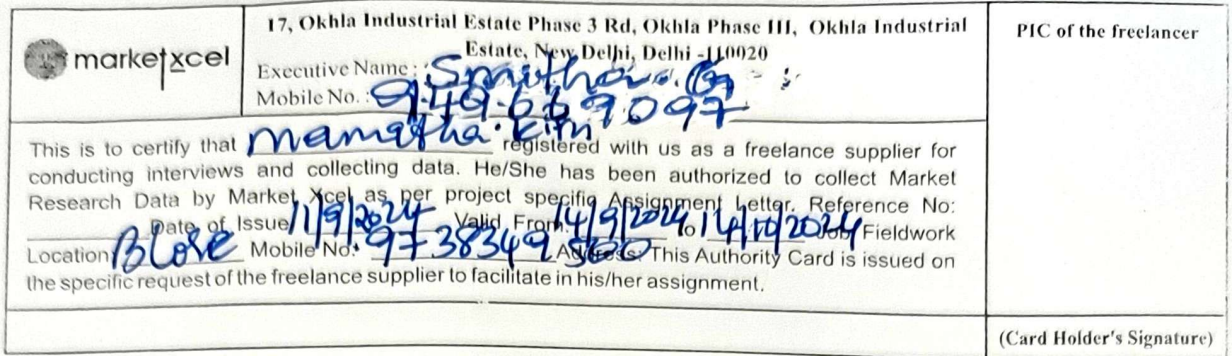 17, Okhla Industrial Estate Phase 3 Rd, Okhla Phase III, Okhla Industrial
Estate, New Delhi, Delhi -110020
marketxcel
Executive Name :
Mobile No. :
PIC of the freelancer
This is to certify that mamatha registered with us as a freelance supplier for
conducting interviews and collecting data. He/She has been authorized to collect Market
Research Data by Market Xcel as per project specific Assignment Letter. Reference No:
Date of Issue 11/9/2024 Valid From: 14/9/2024 to 14/10/2024 Fieldwork
Location Mobile No: 9738349500 Address: This Authority Card is issued on
the specific request of the freelance supplier to facilitate in his/her assignment.
(Card Holder's Signature)